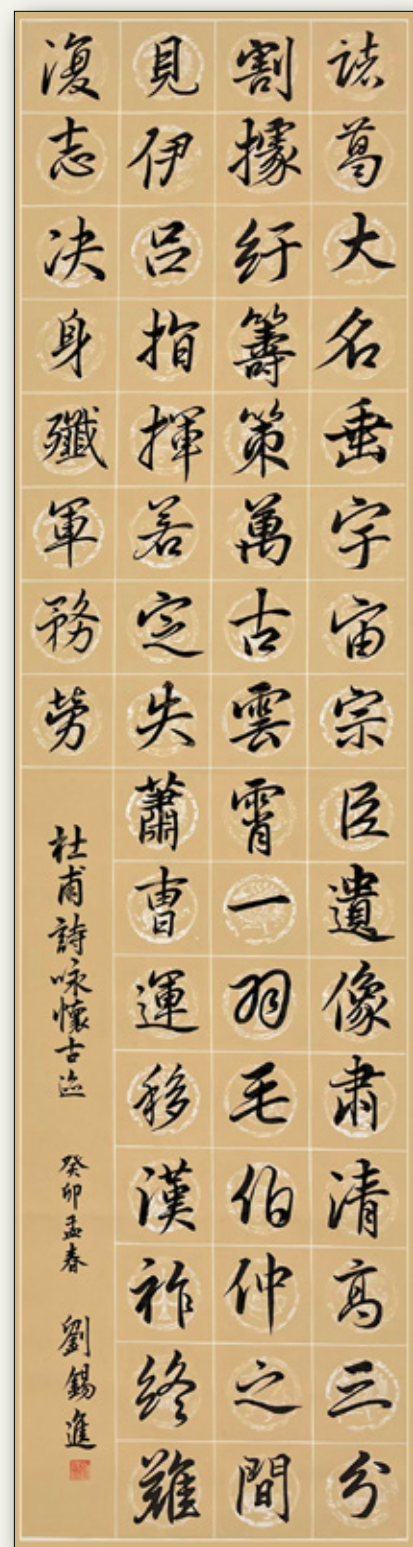 諸葛大名垂宇宙宗臣遺像肅清高三分
割據紆籌策萬古雲霄一羽毛伯仲之間
見伊呂指揮若定失蕭曹運移漢祚終難
復志決身殲軍務勞
杜甫詩咏懷古迹 癸卯孟春 劉錫進